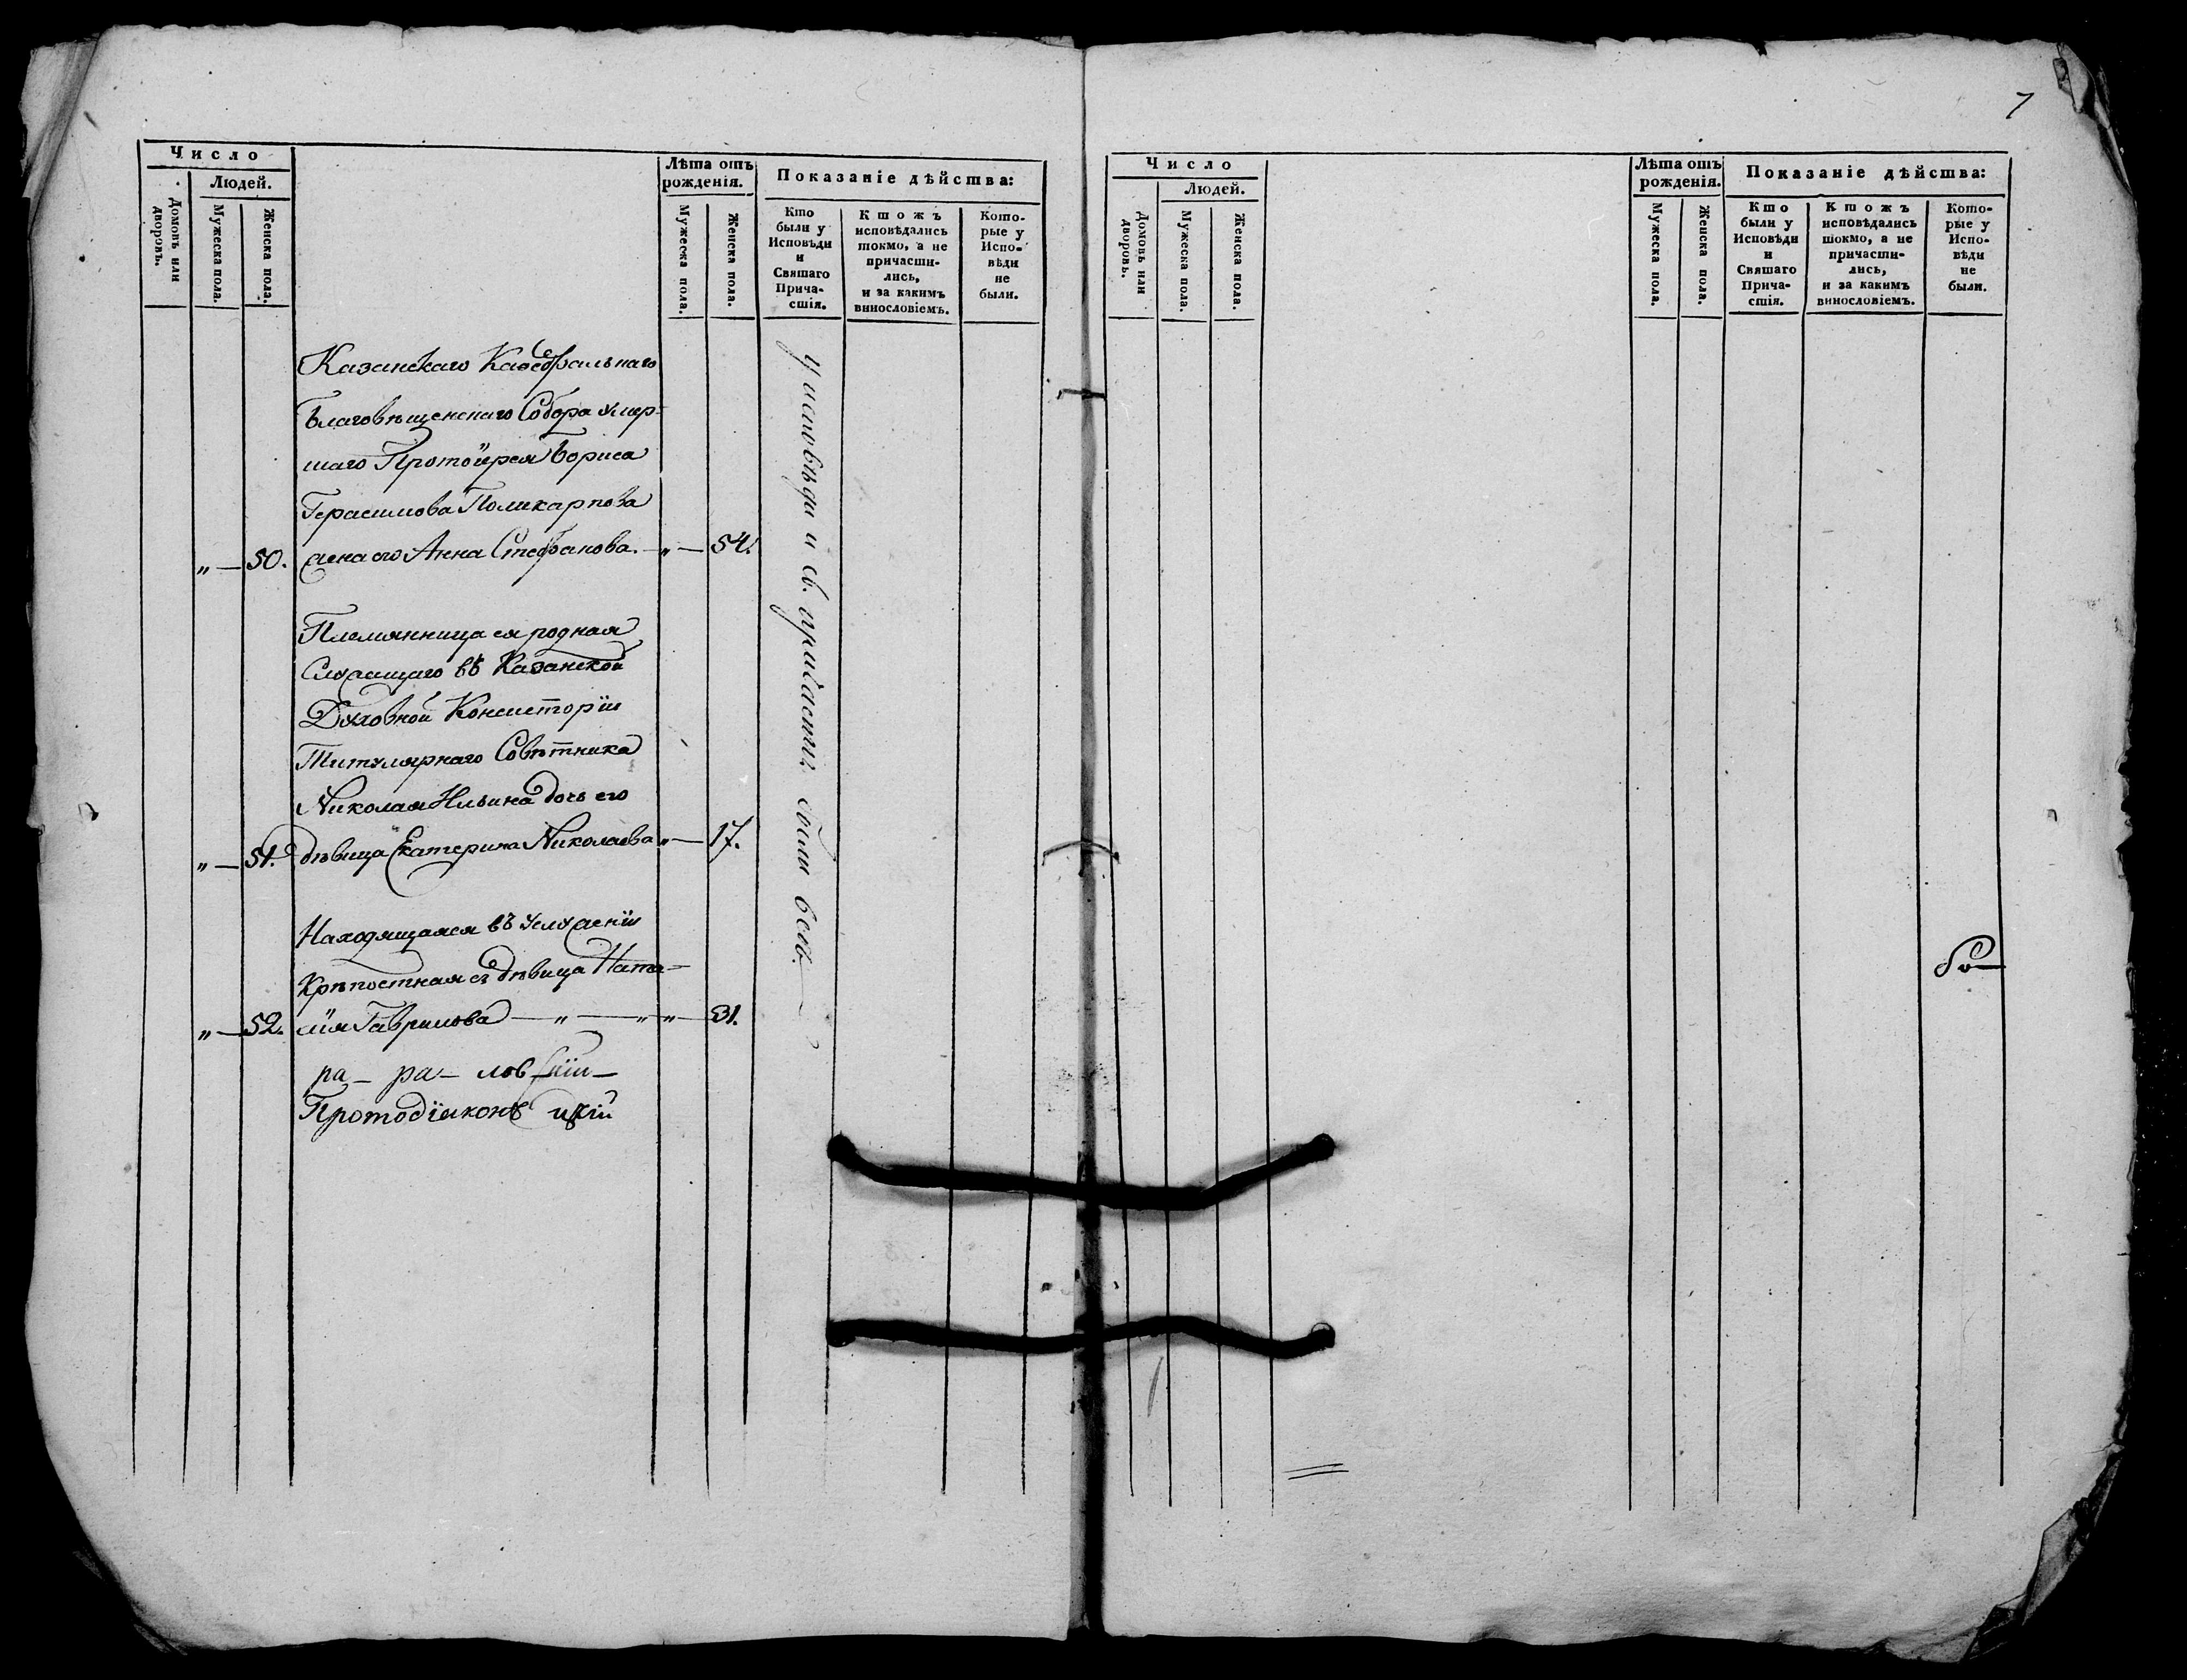 7
Число
Людей.
Домовъ или дворовъ.
Мужеска пола.
Женска пола.
Лѣта отъ рожденія.
Мужеска пола.
Женска пола.
Показаніе дѣйства:
Кто были у Исповѣди и Святаго Прича-стія.
Ктожъ исповѣдались токмо, а не причасти-лись, и за какимъ винословіемъ.
Кото-рые у Испо-вѣди не были.
Казанскаго Каѳедральнаго
Благовѣщенскаго Собора умер-
шаго Протоіерея Бориса
Герасимова Поликарпова
„ — 50. жена его Анна Стефанова. — „ — 54.
Племянница ея родная
Служащаго въ Казанской
Духовной Консисторіи
Титулярнаго Совѣтника
Николая Ильина дочь его
„ — 51. дѣвица Екатерина Николаева „ — 17.
Находящаяся въ услуженіи
Крѣпостная ея дѣвица Ната-
„ — 52. лія Гаврилова — „ — „ — „ — 31.
У исповѣди и св. причастія были всѣ.
ра — ра — лов
Протодіаконъ цкій
Число
Людей.
Домовъ или дворовъ.
Мужеска пола.
Женска пола.
Лѣта отъ рожденія.
Мужеска пола.
Женска пола.
Показаніе дѣйства:
Кто были у Исповѣди и Святаго Прича-стія.
Ктожъ исповѣдались токмо, а не причасти-лись, и за какимъ винословіемъ.
Кото-рые у Испо-вѣди не были.